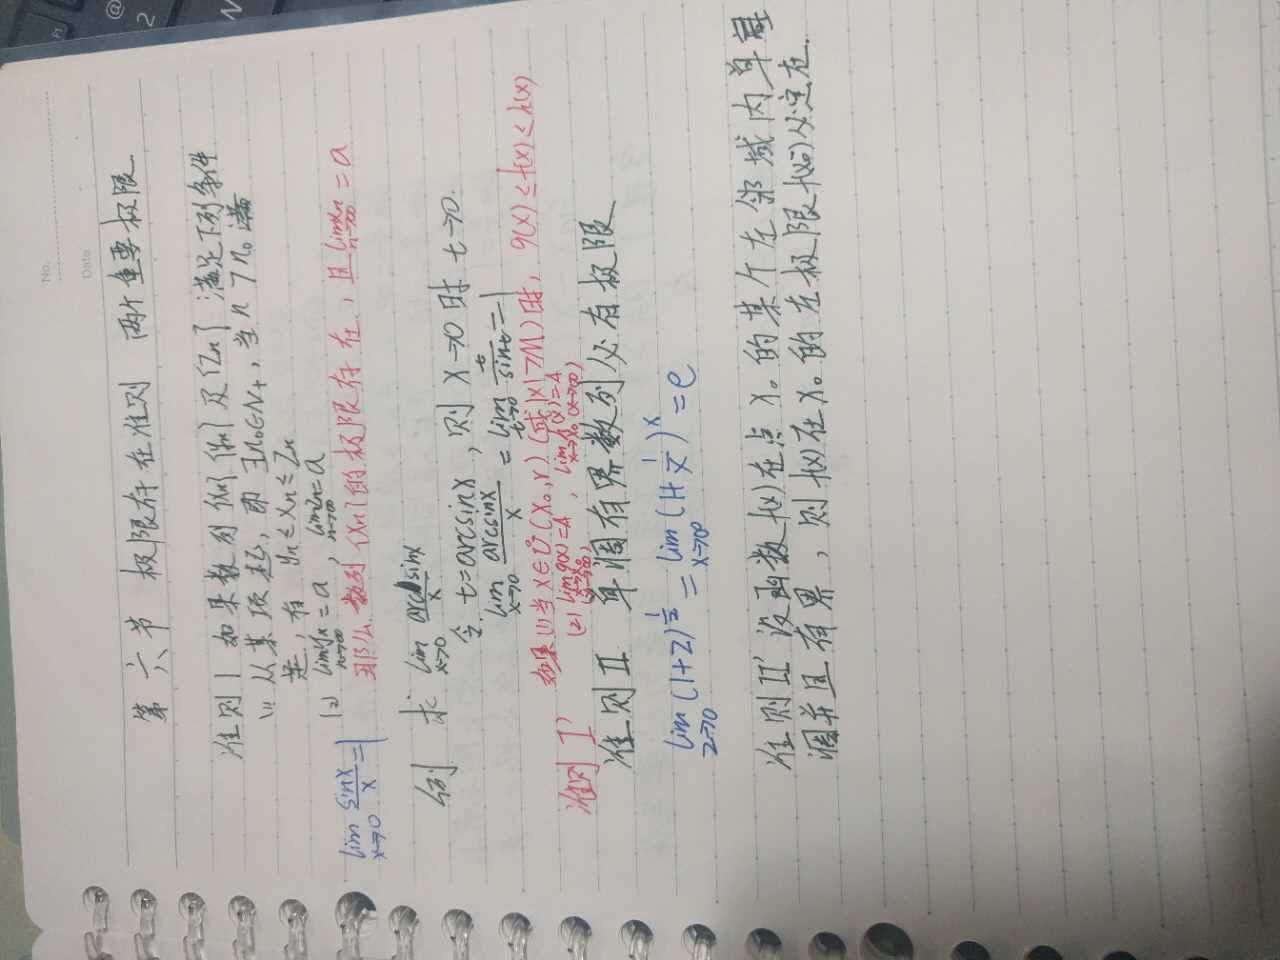 No.
Date
第六节 极限存在准则 两个重要极限
准则I 如果数列{xn}{yn}及{zn}满足下列条件
(1) 从某项起,即∃n0∈N+,当n>n0 满
足,有 yn≤xn≤zn
(2) lim n→∞ yn=a, lim n→∞ zn=a
那么数列{xn}的极限存在,且 lim n→∞ xn=a
lim x→0 sinx/x=1
例 求 lim x→0 arcsinx/x
令 t=arcsinx,则x→0时 t→0.
lim x→0 arcsinx/x = lim t→0 t/sint=1
准则I' 如果(1)当x∈Ů(x0,r)(或|x|>M)时,g(x)≤f(x)≤h(x)
(2) lim x→x0 (x→∞) g(x)=A, lim x→x0 (x→∞) h(x)=A
准则II 单调有界数列必有极限
lim z→0 (1+z)^1/z = lim x→∞ (1+1/x)^x = e
准则II' 设函数f(x)在点x0的某个左邻域内单
调并且有界,则f(x)在x0的左极限f(x0-)必定存在.
@
2
N